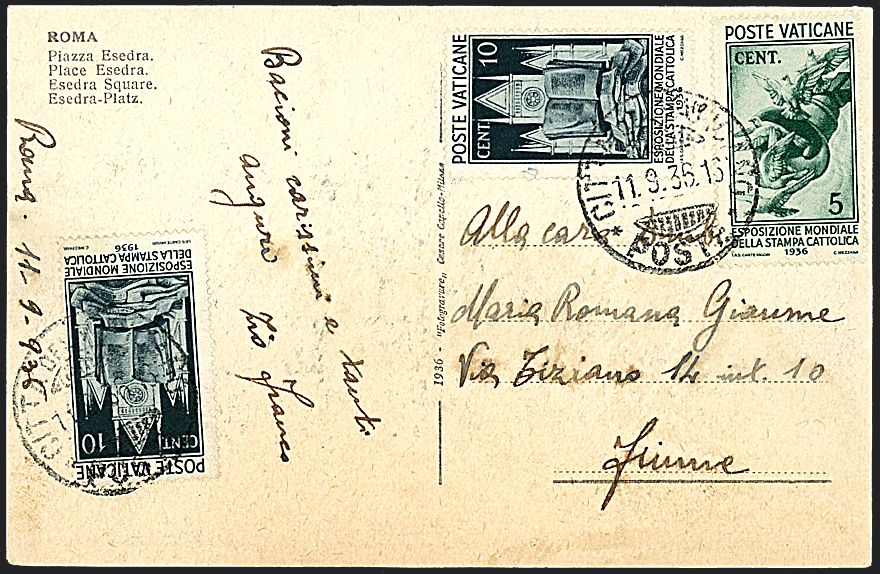 ROMA
Piazza Esedra.
Place Esedra.
Esedra Square.
Esedra-Platz.
Roma. 11-9-936
Bacioni carissimi e tanti
auguri Zio Franco
POSTE VATICANE
CENT. 10
ESPOSIZIONE MONDIALE
DELLA STAMPA CATTOLICA
1936
C. MEZZANA
POSTE VATICANE
CENT.
5
ESPOSIZIONE MONDIALE
DELLA STAMPA CATTOLICA
1936
I.P.S. CARTE VALORI C. MEZZANA
CITTÀ
11.9.36.16
POSTE
POSTE VATICANE
CENT. 10
ESPOSIZIONE MONDIALE
DELLA STAMPA CATTOLICA
1936
I.P.S. CARTE VALORI C. MEZZANA
1936 - "Fotogravure" Cesare Capello-Milano
Alla cara
Maria Romana Giaume
Via Tiziano 14 int. 10
Fiume